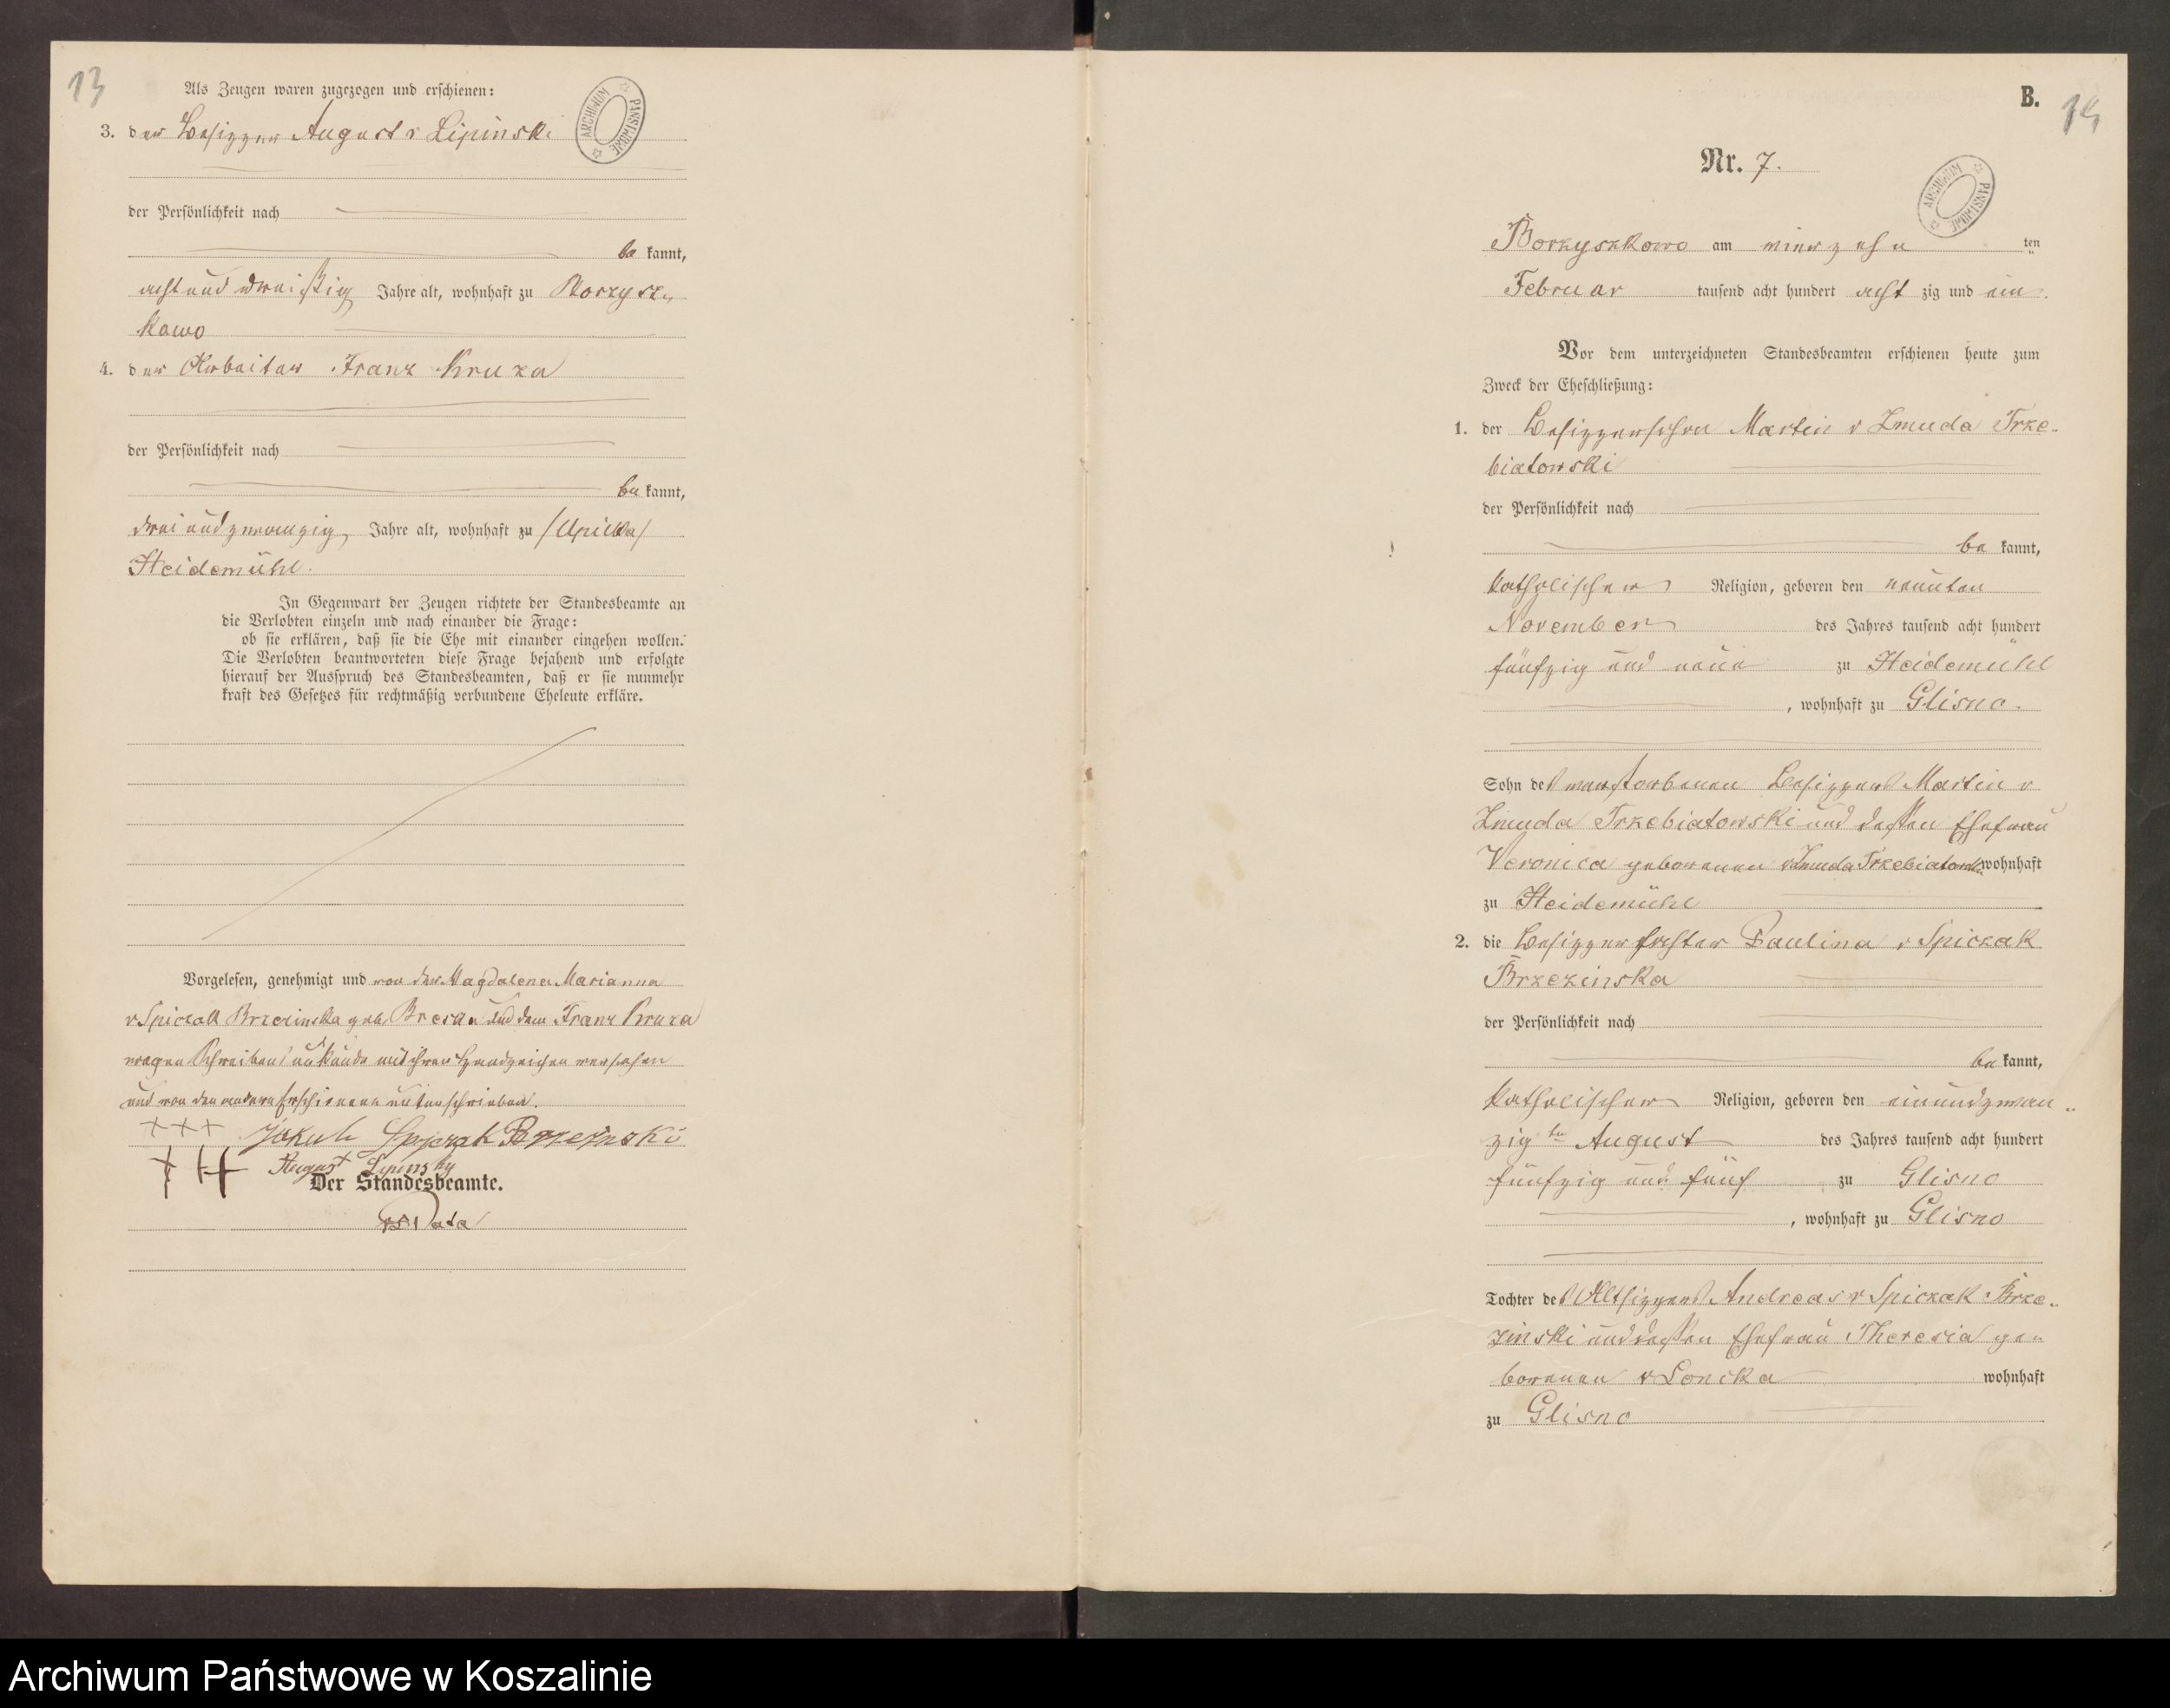 13
Als Zeugen waren zugezogen und erschienen:
ARCHIWUM PAŃSTWOWE
3. der Besitzer August v Lipinski
der Persönlichkeit nach
be kannt,
acht und dreißig Jahre alt, wohnhaft zu Borzysz„
kowo
4. der Arbeiter Franz Kruza
der Persönlichkeit nach
be kannt,
drei und zwanzig Jahre alt, wohnhaft zu
Heidemühl.
In Gegenwart der Zeugen richtete der Standesbeamte an
die Verlobten einzeln und nach einander die Frage:
ob sie erklären, daß sie die Ehe mit einander eingehen wollen.
Die Verlobten beantworteten diese Frage bejahend und erfolgte
hierauf der Ausspruch des Standesbeamten, daß er sie nunmehr
kraft des Gesetzes für rechtmäßig verbundene Eheleute erkläre.
Vorgelesen, genehmigt und von der Magdalena Marianna
v Spiczak Brzezinska geb. und dem Franz Kruza
wegen Schreibens unkunde mit ihren Handzeichen versehen
und von den andern Erschienenen unterschrieben.
+++ Jakub Spiczak Brzezinski
+++ August Lipinsky
Der Standesbeamte.
B.
14
Nr. 7.
ARCHIWUM PAŃSTWOWE
Borzyszkowo am vierzehn ten
Februar tausend acht hundert acht zig und ein.
Vor dem unterzeichneten Standesbeamten erschienen heute zum
Zweck der Eheschließung:
1. der Besitzersohn Martin v Zmuda Trze„
biatowski
der Persönlichkeit nach
be kannt,
katholischer Religion, geboren den neunten
November des Jahres tausend acht hundert
fünfzig und neun zu Heidemühl
, wohnhaft zu Glisno.
Sohn des verstorbenen Besitzers Martin v
Zmuda Trzebiatowski und dessen Ehefrau
Veronica geborenen v Zmuda Trzebiatowski wohnhaft
zu Heidemühl
2. die Besitzertochter Paulina v Spiczak
Brzezinska
der Persönlichkeit nach
be kannt,
katholischer Religion, geboren den einundzwan„
zigten August des Jahres tausend acht hundert
fünfzig und fünf zu Glisno
, wohnhaft zu Glisno
Tochter des Altsitzers Andreas v Spiczak Brze„
zinski und dessen Ehefrau Theresia ge„
borenen v Loncka wohnhaft
zu Glisno
Archiwum Państwowe w Koszalinie